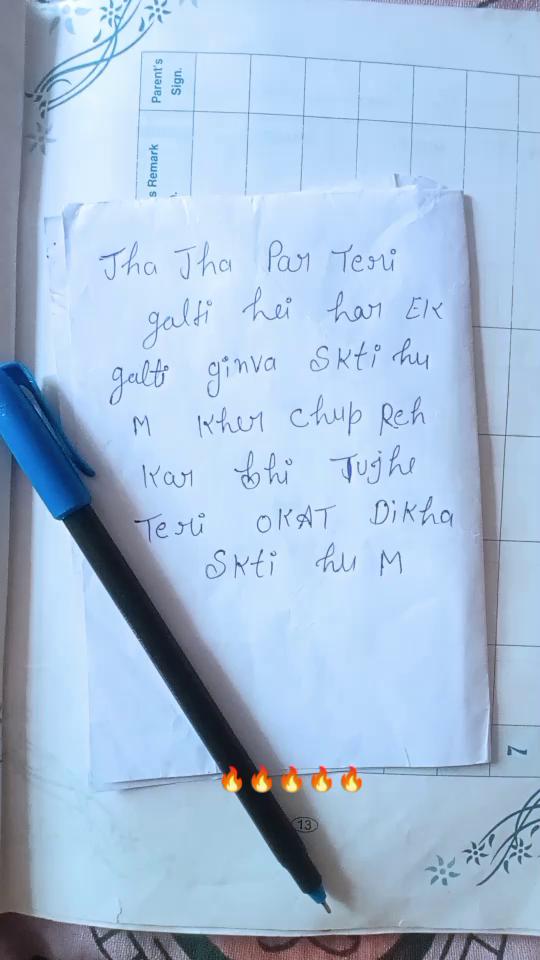 Parent's
Sign.
s Remark
n.
Jha Jha Par Teri
galti hei har EK
galti ginva Skti hu
M Kher Chup Reh
Kar bhi Tujhe
Teri OKAT Dikha
Skti hu M
🔥🔥🔥🔥🔥
13
7